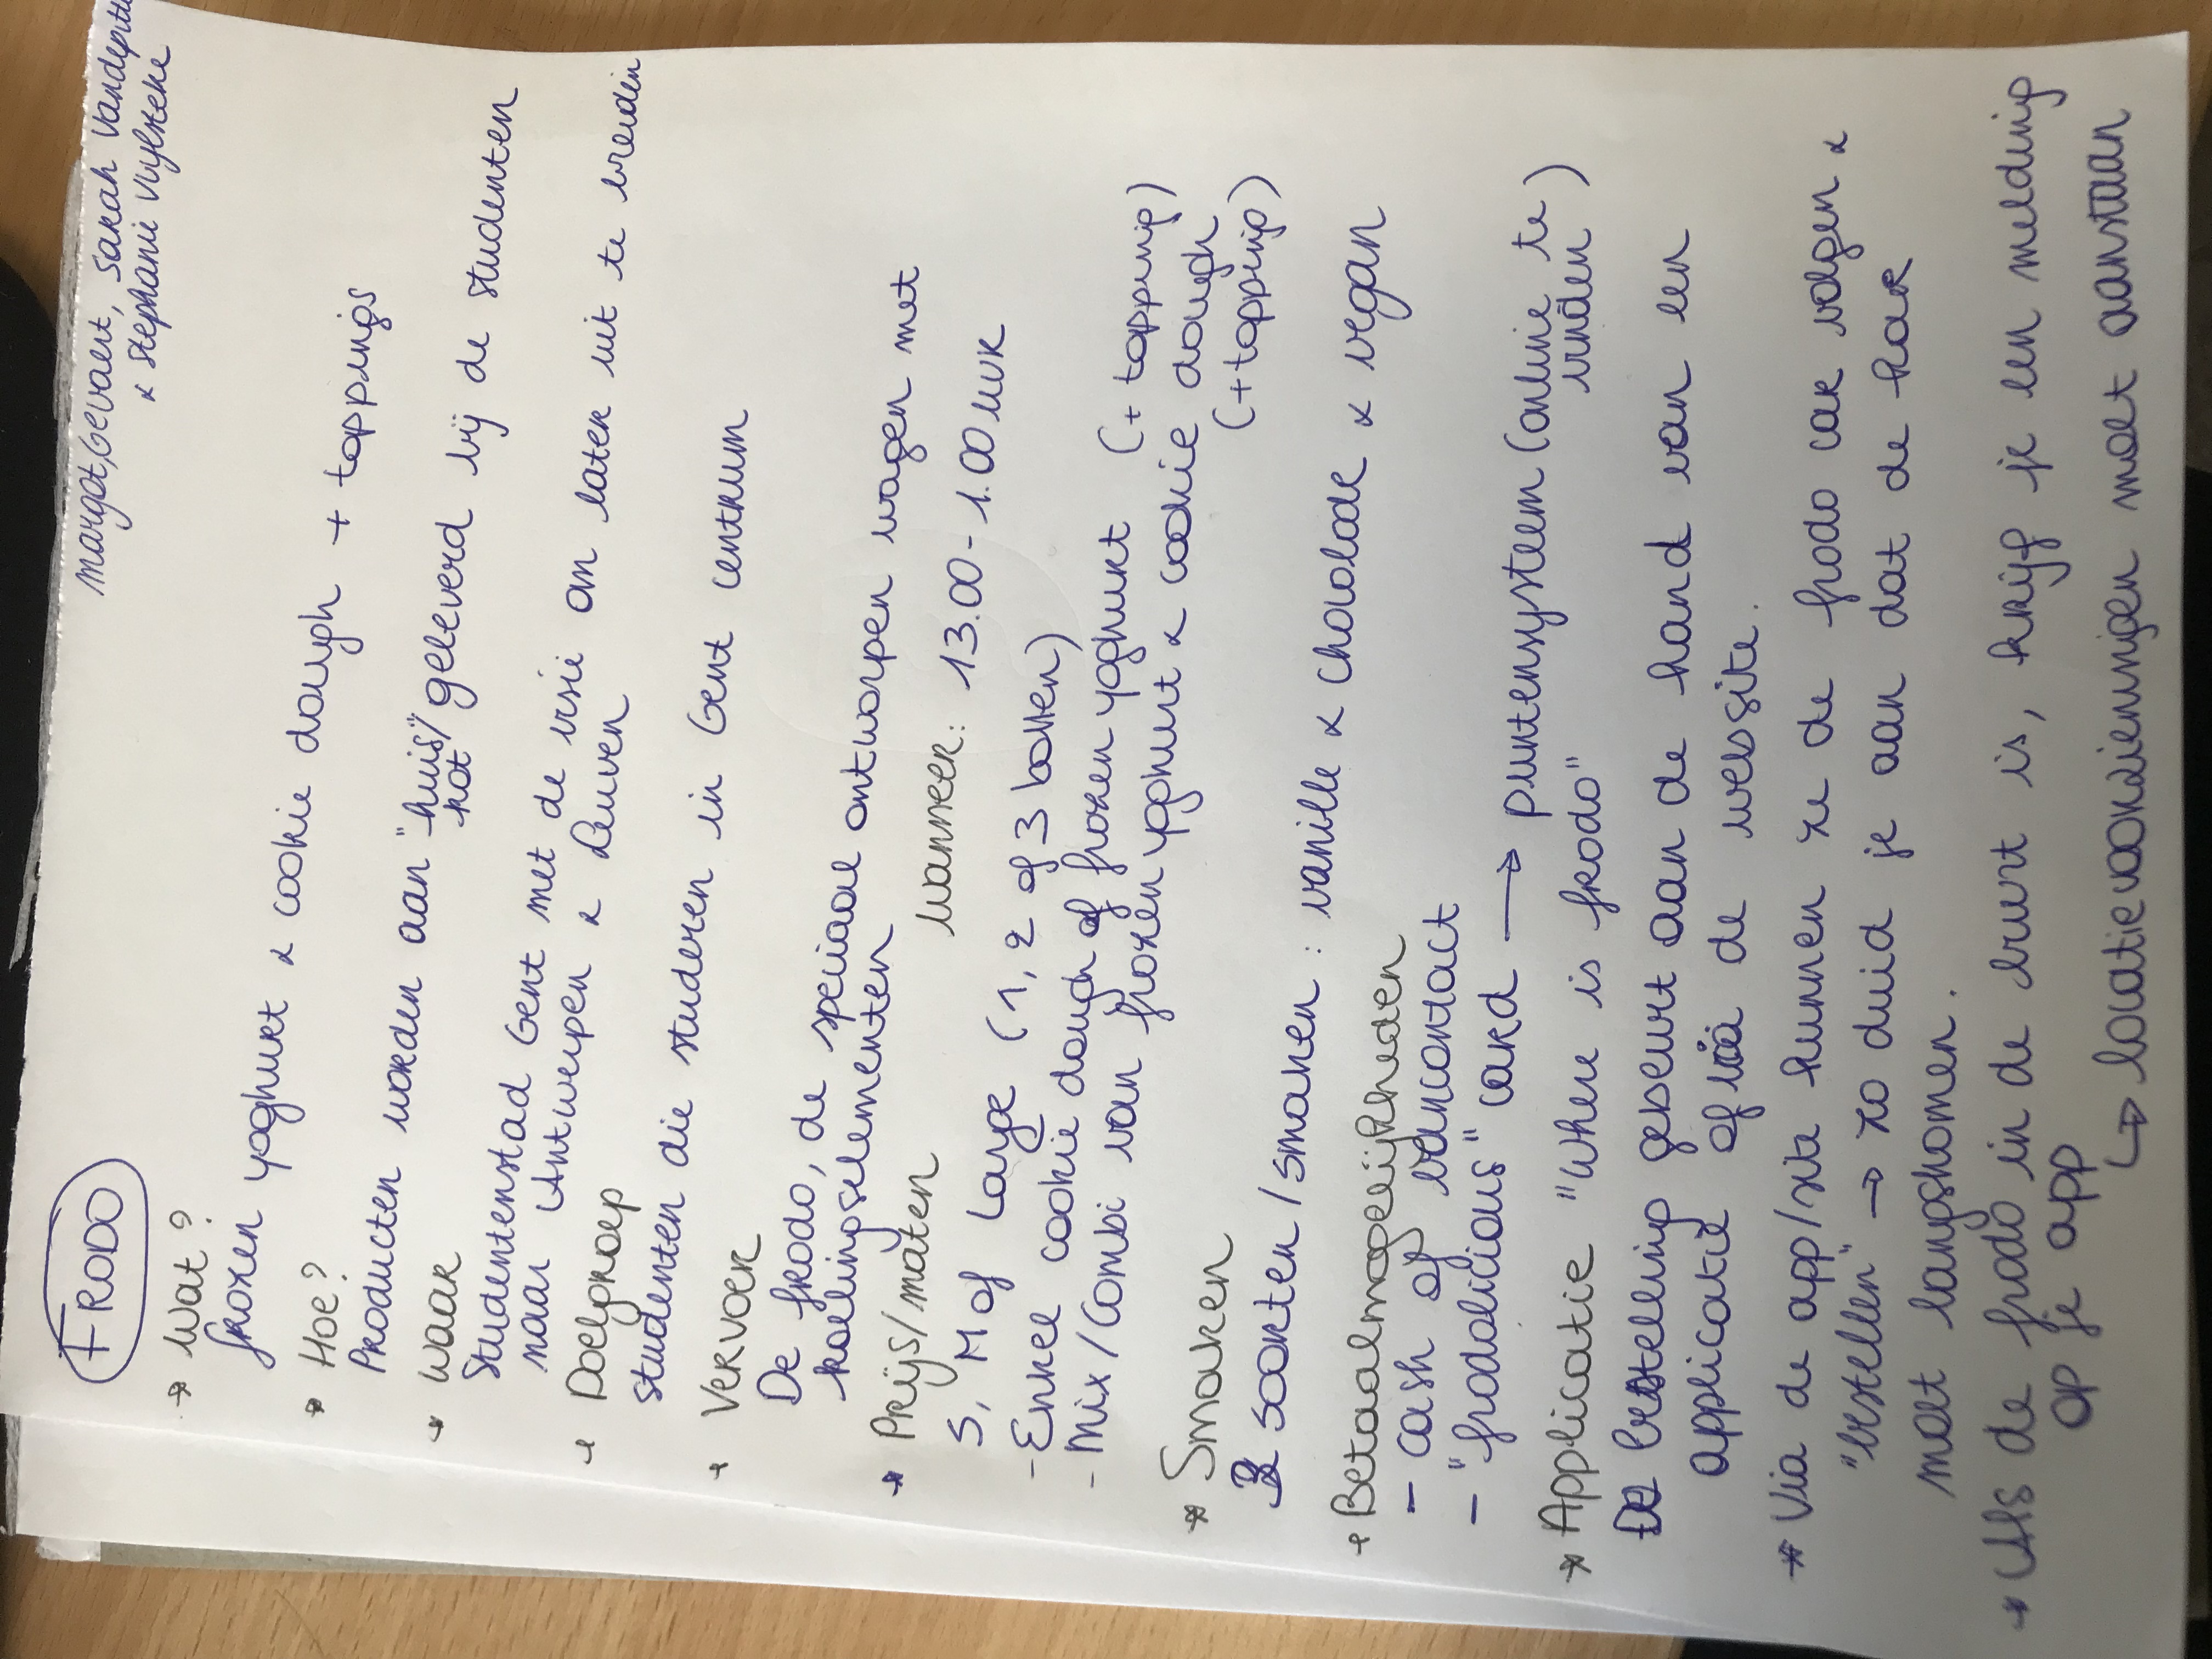 FRODO
Margot, Gevaert, Sarah Vandeputte
& Stephanie Vuylsteke
* Wat?
frozen yoghurt & cookie dough + toppings
* Hoe?
Producten worden aan "huis"/ geleverd bij de studenten
kot
* Waar
Studentenstad Gent met de visie om later uit te breiden
naar Antwerpen & Leuven
* Doelgroep
studenten die studeren in Gent centrum
* Vervoer
De frodo, de speciaal ontworpen wagen met
koelingselementen
* Prijs/maten
Wanneer: 13.00 - 1.00 uur
S, M of Large (1, 2 of 3 bollen)
- Enkel cookie dough of frozen yoghurt (+ topping)
- Mix/Combi van frozen yoghurt & cookie dough
(+ topping)
* Smaken
3 soorten/smaken : vanille & chocolade & vegan
* Betaalmogelijkheden
- cash of bancontact
- "frodolicious" card → puntensysteem (online te
vinden)
* Applicatie "Where is frodo"
De bestelling gebeurt aan de hand van een
applicatie of via de website.
* Via de app/site kunnen ze de frodo car volgen &
"bestellen" → zo duid je aan dat de kar
moet langskomen.
* Als de frodo in de buurt is, krijg je een melding
op je app
↳ locatievoorzieningen moet aanstaan